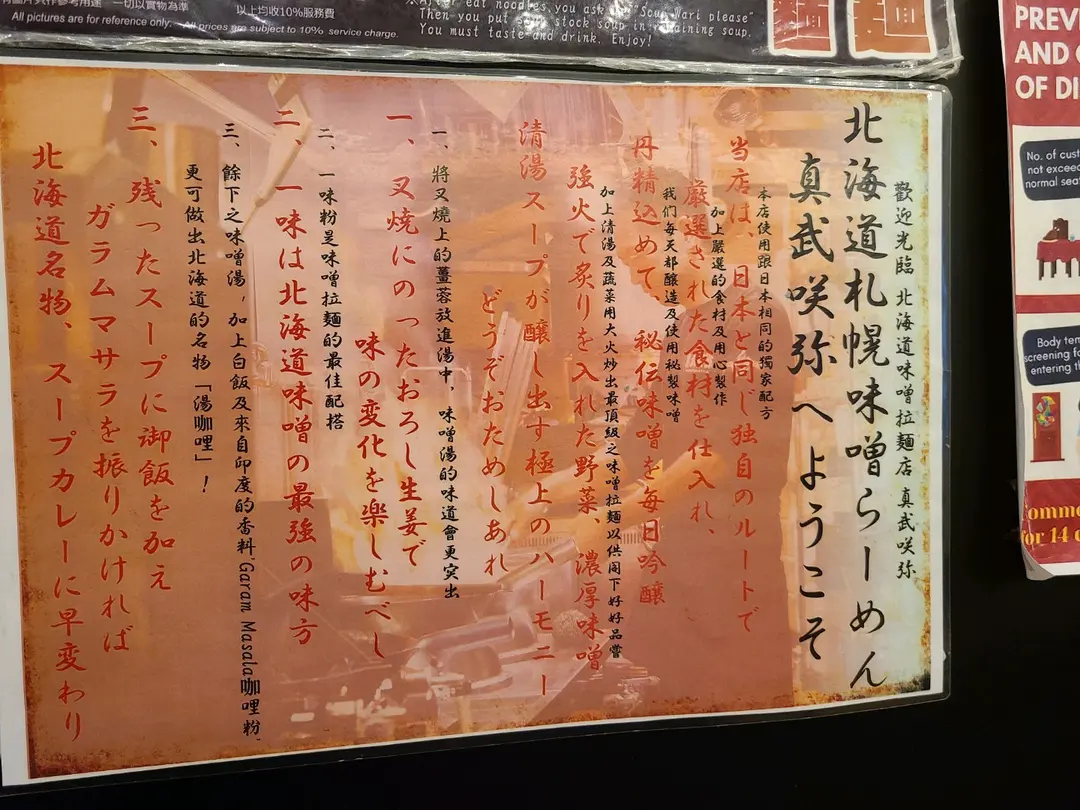 有圖片只作參考用途 一切以實物為準
All pictures are for reference only.
以上均收10%服務費
All prices are subject to 10% service charge.
eat noodles, you ask "Soup Wari please"
Then you put stock soup in remaining soup.
You must taste and drink. Enjoy!
歡迎光臨 北海道味噌拉麵店 真武咲弥
北海道札幌味噌らーめん
真武咲弥へようこそ
本店使用跟日本相同的獨家配方
当店は、日本と同じ独自のルートで
加上嚴選的食材及用心製作
厳選された食材を仕入れ、
我们每天都釀造及使用秘製味噌
丹精込めて、秘伝味噌を毎日吟醸
加上清湯及蔬菜用大火炒出最頂級之味噌拉麵以供閣下好好品嘗
強火で炙りを入れた野菜、濃厚味噌
清湯スープが醸し出す極上のハーモニー
どうぞおためしあれ
一、將叉燒上的薑蓉放進湯中，味噌湯的味道會更突出
一、叉焼にのったおろし生姜で
味の変化を楽しむべし
二、一味粉是味噌拉麵的最佳配搭
二、一味は北海道味噌の最強の味方
三、餘下之味噌湯，加上白飯及來自印度的香料,Garam Masala咖哩粉,
更可做出北海道的名物「湯咖哩」！
三、残ったスープに御飯を加え
ガラムマサラを振りかければ
北海道名物、スープカレーに早変わり
PREV
AND
OF DI
No. of cust
not exceed
normal sea
Body tem
screening fo
entering th
for 14